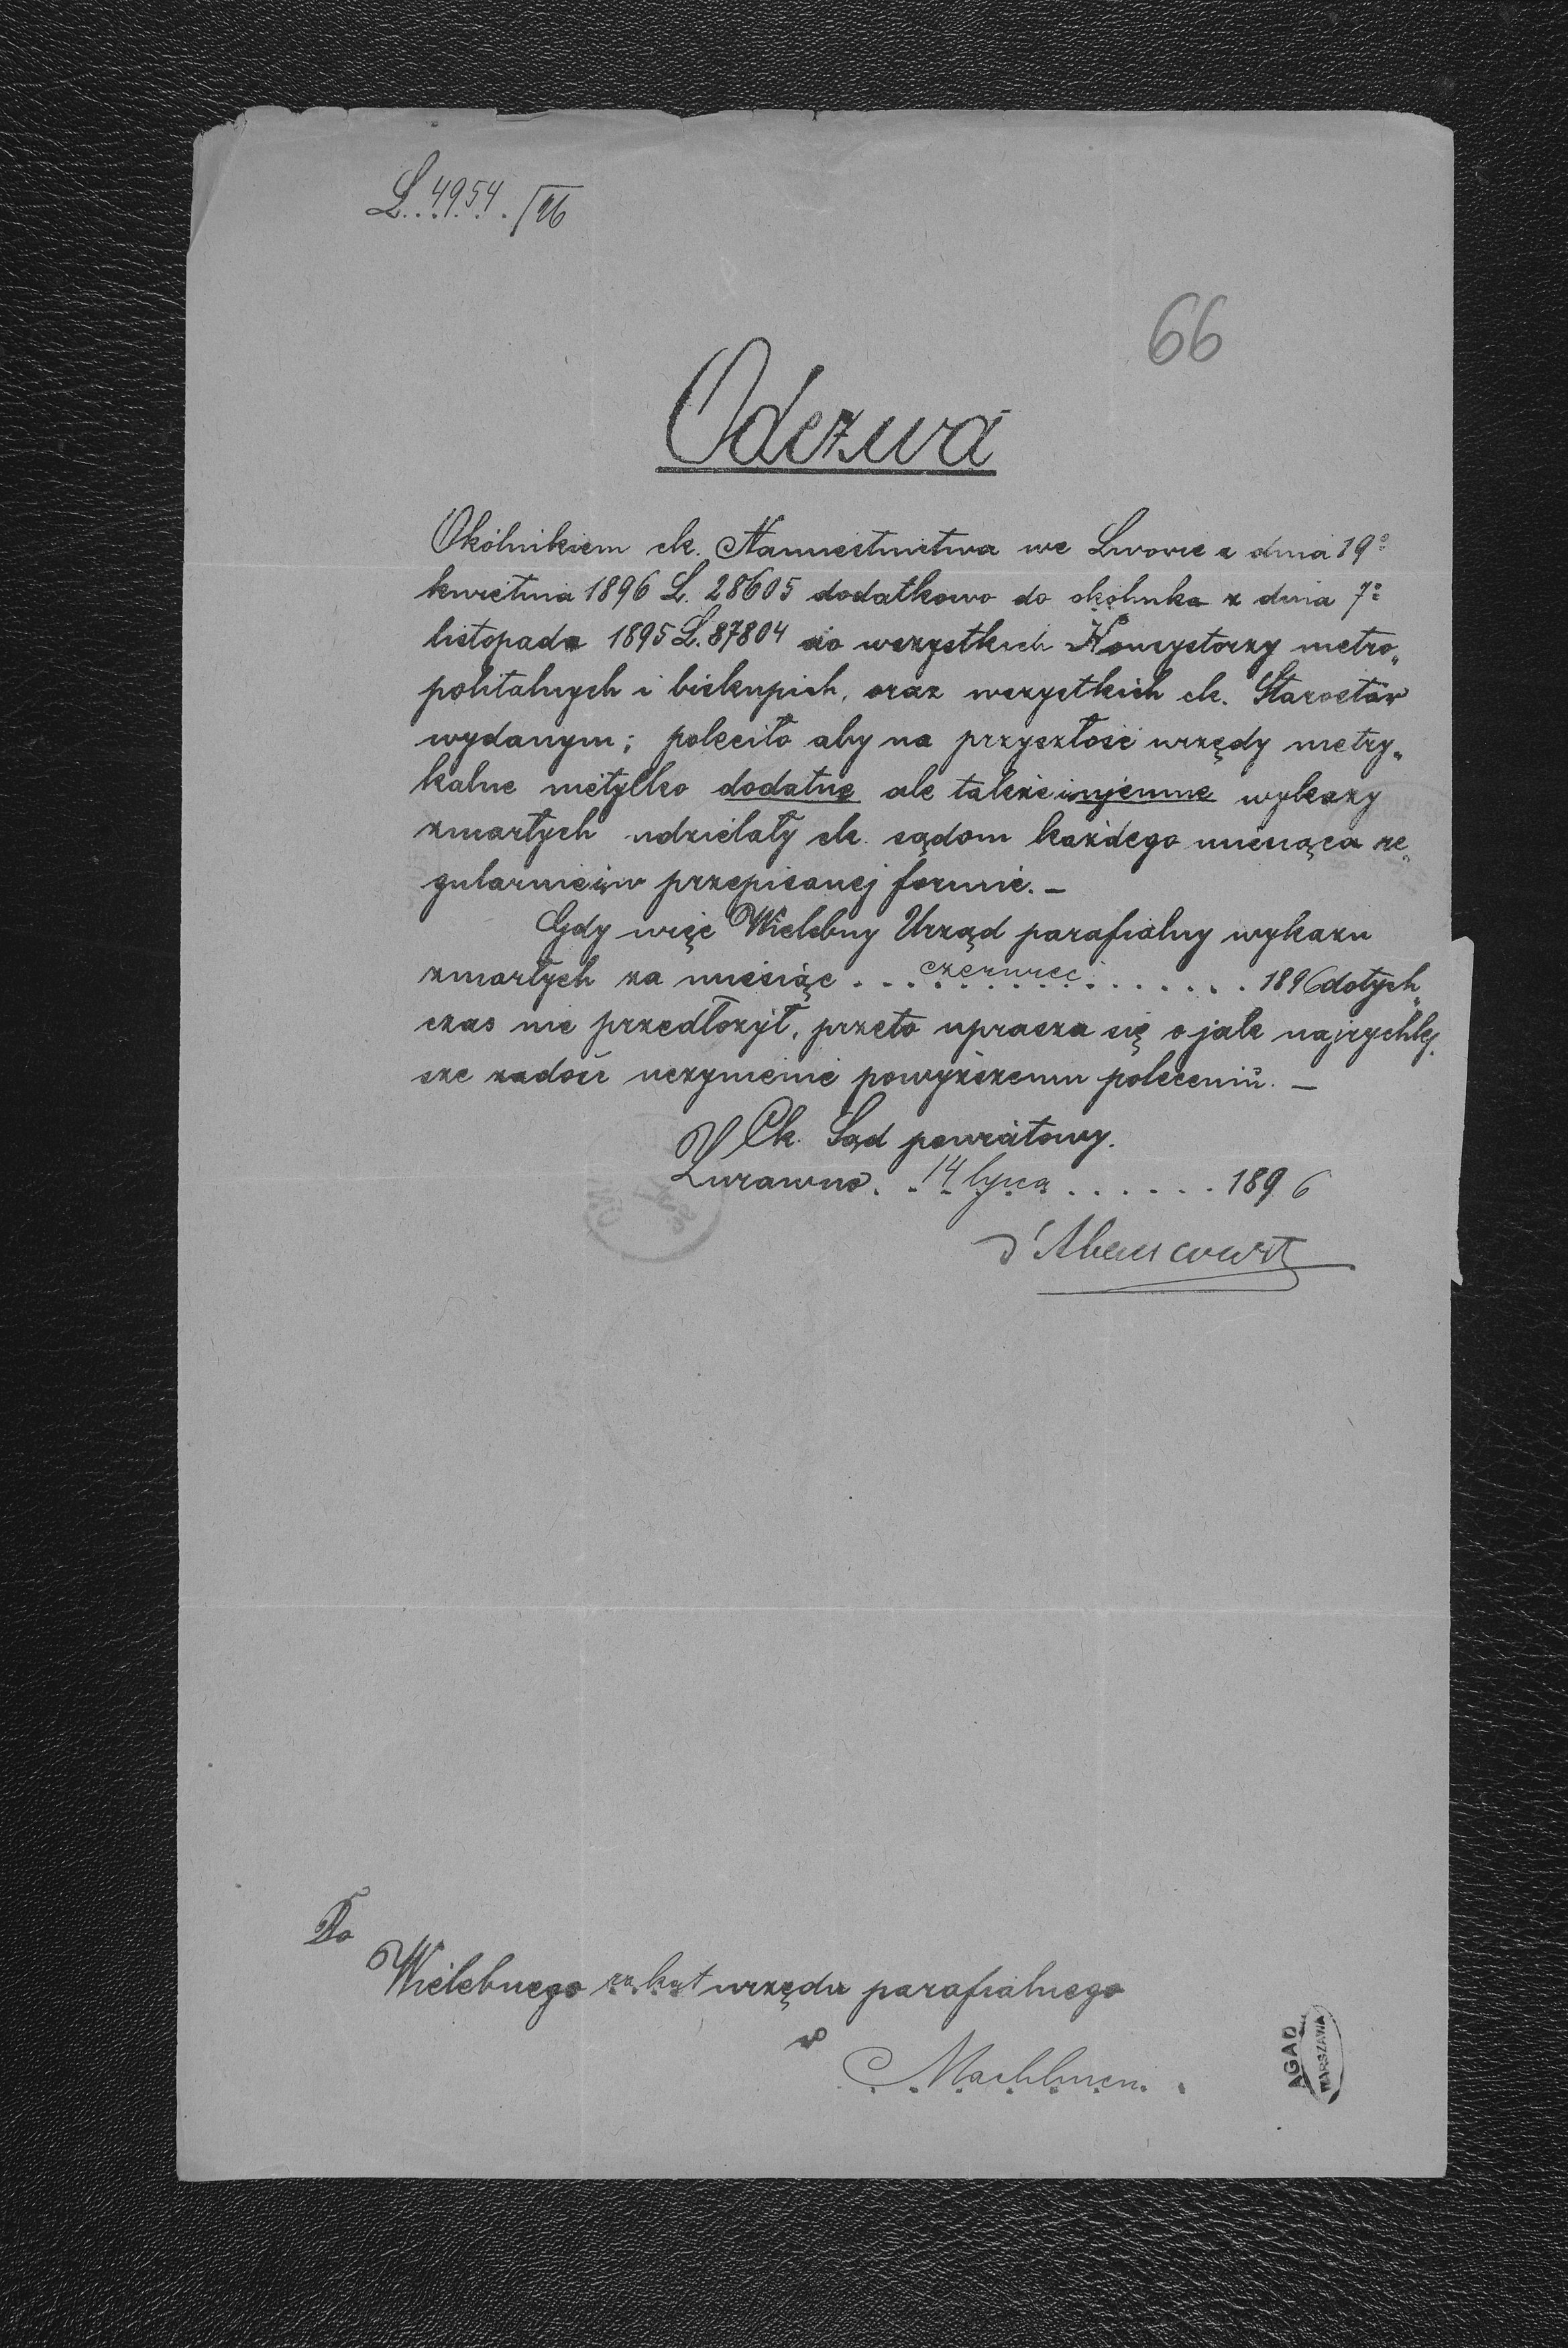 L. 4954./96
66
Odezwa
Okólnikiem ck. Namiestnictwa we Lwowie z dnia 19º
kwietnia 1896 L. 28605 dodatkowo do okólnika z dnia 7º
listopada 1895 L. 87804 do wszystkich Konsystorzy metro„
politalnych i biskupich, oraz wszystkich ck. Starostów
wydanym; poleciło aby na przyszłość urzędy metry„
kalne nietylko dodatne ale także i ujemne wykazy
zmarłych udzielały ck. sądom każdego miesiąca re„
gularnie i w przepisanej formie. –
Gdy więc Wielebny Urząd parafialny wykazu
zmarłych za miesiąc . . czerwiec . . . . . . 1896 dotych„
czas nie przedłożył, przeto uprasza się o jak najrychlej„
sze zadość uczynienie powyższemu poleceniu. –
Ck. Sąd powiatowy.
Żurawno. . 14 lipca . . . . . . 1896
d'Abancourt
Do
Wielebnego rz. kat urzędu parafialnego
w
Machlińcu.
AGAD
WARSZAWA